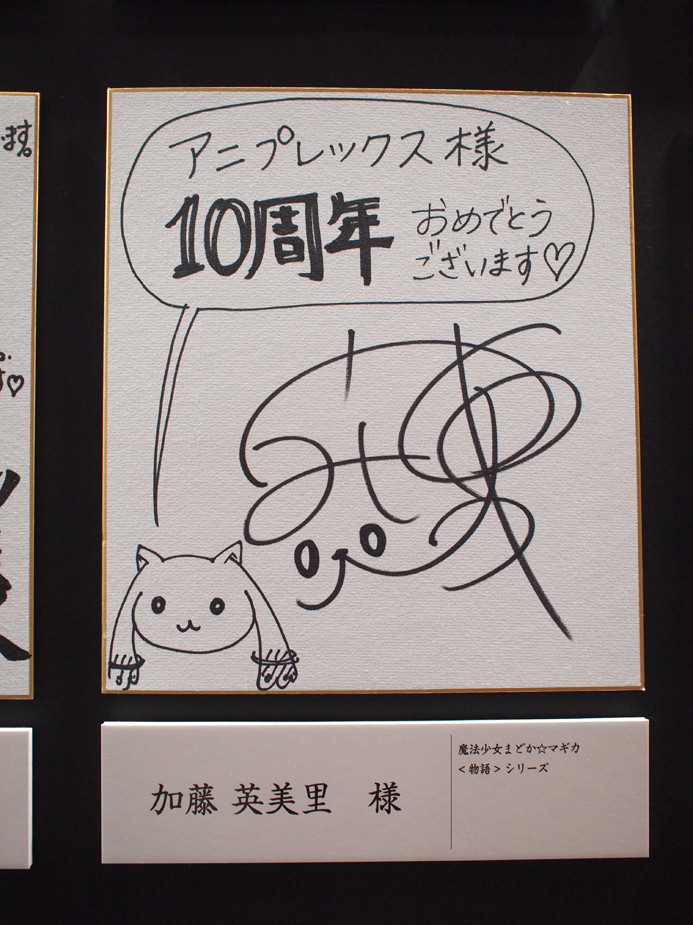 アニプレックス様
10周年
おめでとう
ございます♡
加藤 英美里 様
魔法少女まどか☆マギカ
<物語>シリーズ
ます。